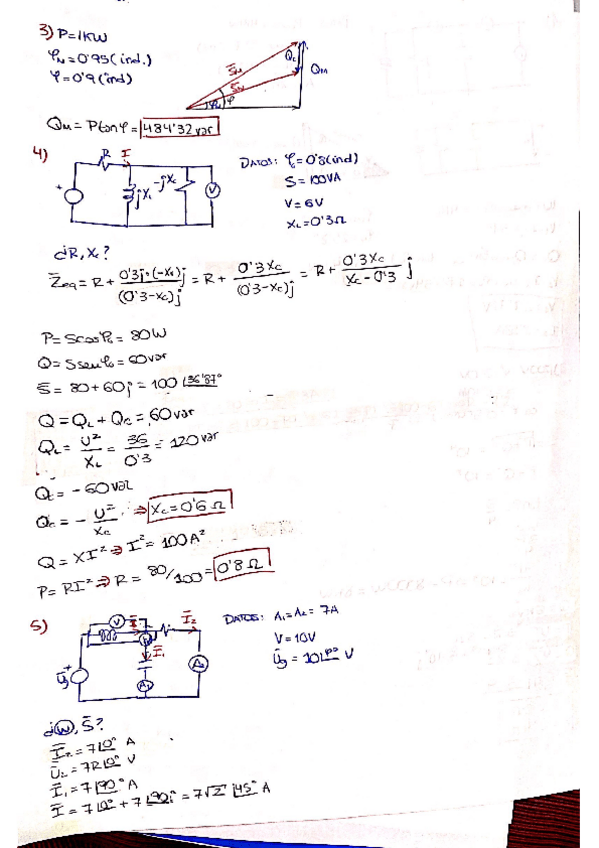 3) P=1KW
φM=0'95(ind.)
φ=0'9(ind)
Qc
QM
S̄M
φM
φ
QM = P tan φ = 484'32 var
4)
R
I
jXL
-jXc
V
+
DATOS: φ=0'8(ind)
S = 100VA
V = 6V
XL = 0'3Ω
¿R, Xc?
Z̄eq = R + 0'3j·(-Xc)j / (0'3-Xc)j = R + 0'3Xc / (0'3-Xc)j = R + 0'3Xc / Xc-0'3 j
P = Scosφ = 80W
Q = Ssenφ = 60var
S̄ = 80+60j = 100 |36'87°
Q = QL + QC = 60var
QL = U² / XL = 36 / 0'3 = 120 var
Qc = -60var
Qc = - U² / Xc ⇒ Xc = 0'6 Ω
Q = XI² ⇒ I² = 100A²
P = RI² ⇒ R = 80/100 = 0'8 Ω
5)
V
Ī
W
Ī2
Ī1
A1
A2
Ūg
+
DATOS: A1 = A2 = 7A
V = 10V
Ūg = 10|φ° V
¿W, S̄?
Ī2 = 7|0° A
Ū2 = 7R|0° V
Ī1 = 7|90° A
Ī = 7|0° + 7|90° = 7√2 |45° A